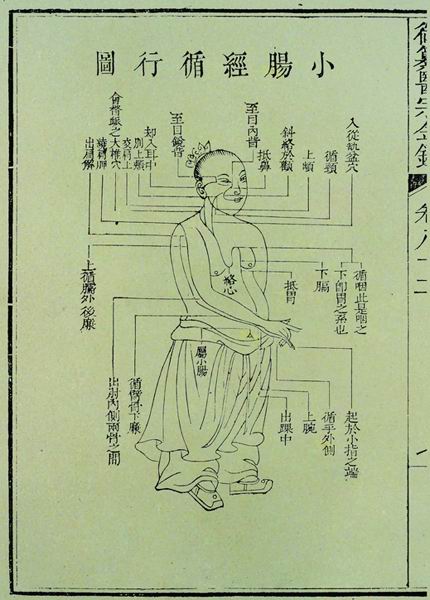 小腸經循行圖
入從缺盆穴
循頸
上頰
斜絡於顴
抵鼻
至目內眥
至目銳眥
却入耳中
別上頰
交肩上
大椎穴
會督脈之
繞肩胛
出肩解
循咽此是咽之
下卽胃之系也
下膈
抵胃
絡心
屬小腸
上循臑外後廉
起於小指之端
循手外側
上腕
出踝中
循臂骨下廉
出肘內側兩骨之間
御纂醫宗金鑑
卷八十二